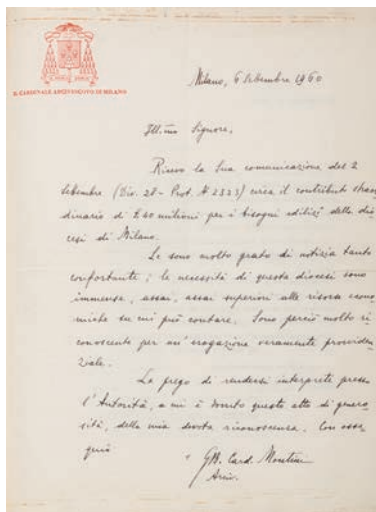 IL CARDINALE ARCIVESCOVO DI MILANO
Milano, 6 Settembre 1960
Ill.mo Signore,
Ricevo la Sua comunicazione del 2
Settembre (Div. 28 - Prot. N. 2323) circa il contributo straor
dinario di £ 40 milioni per i bisogni edilizi della dio
cesi di Milano.
Le sono molto grato di notizia tanto
confortante; le necessità di questa diocesi sono
immense, assai, assai superiori alle risorse econo
miche su cui può contare. Sono perciò molto ri
conoscente per un'erogazione veramente provviden
ziale.
La prego di rendersi interprete presso
l'Autorità, a cui è dovuto questo atto di genero
sità, della mia devota riconoscenza. Con osse
quio
GB. Card. Montini
Arciv.